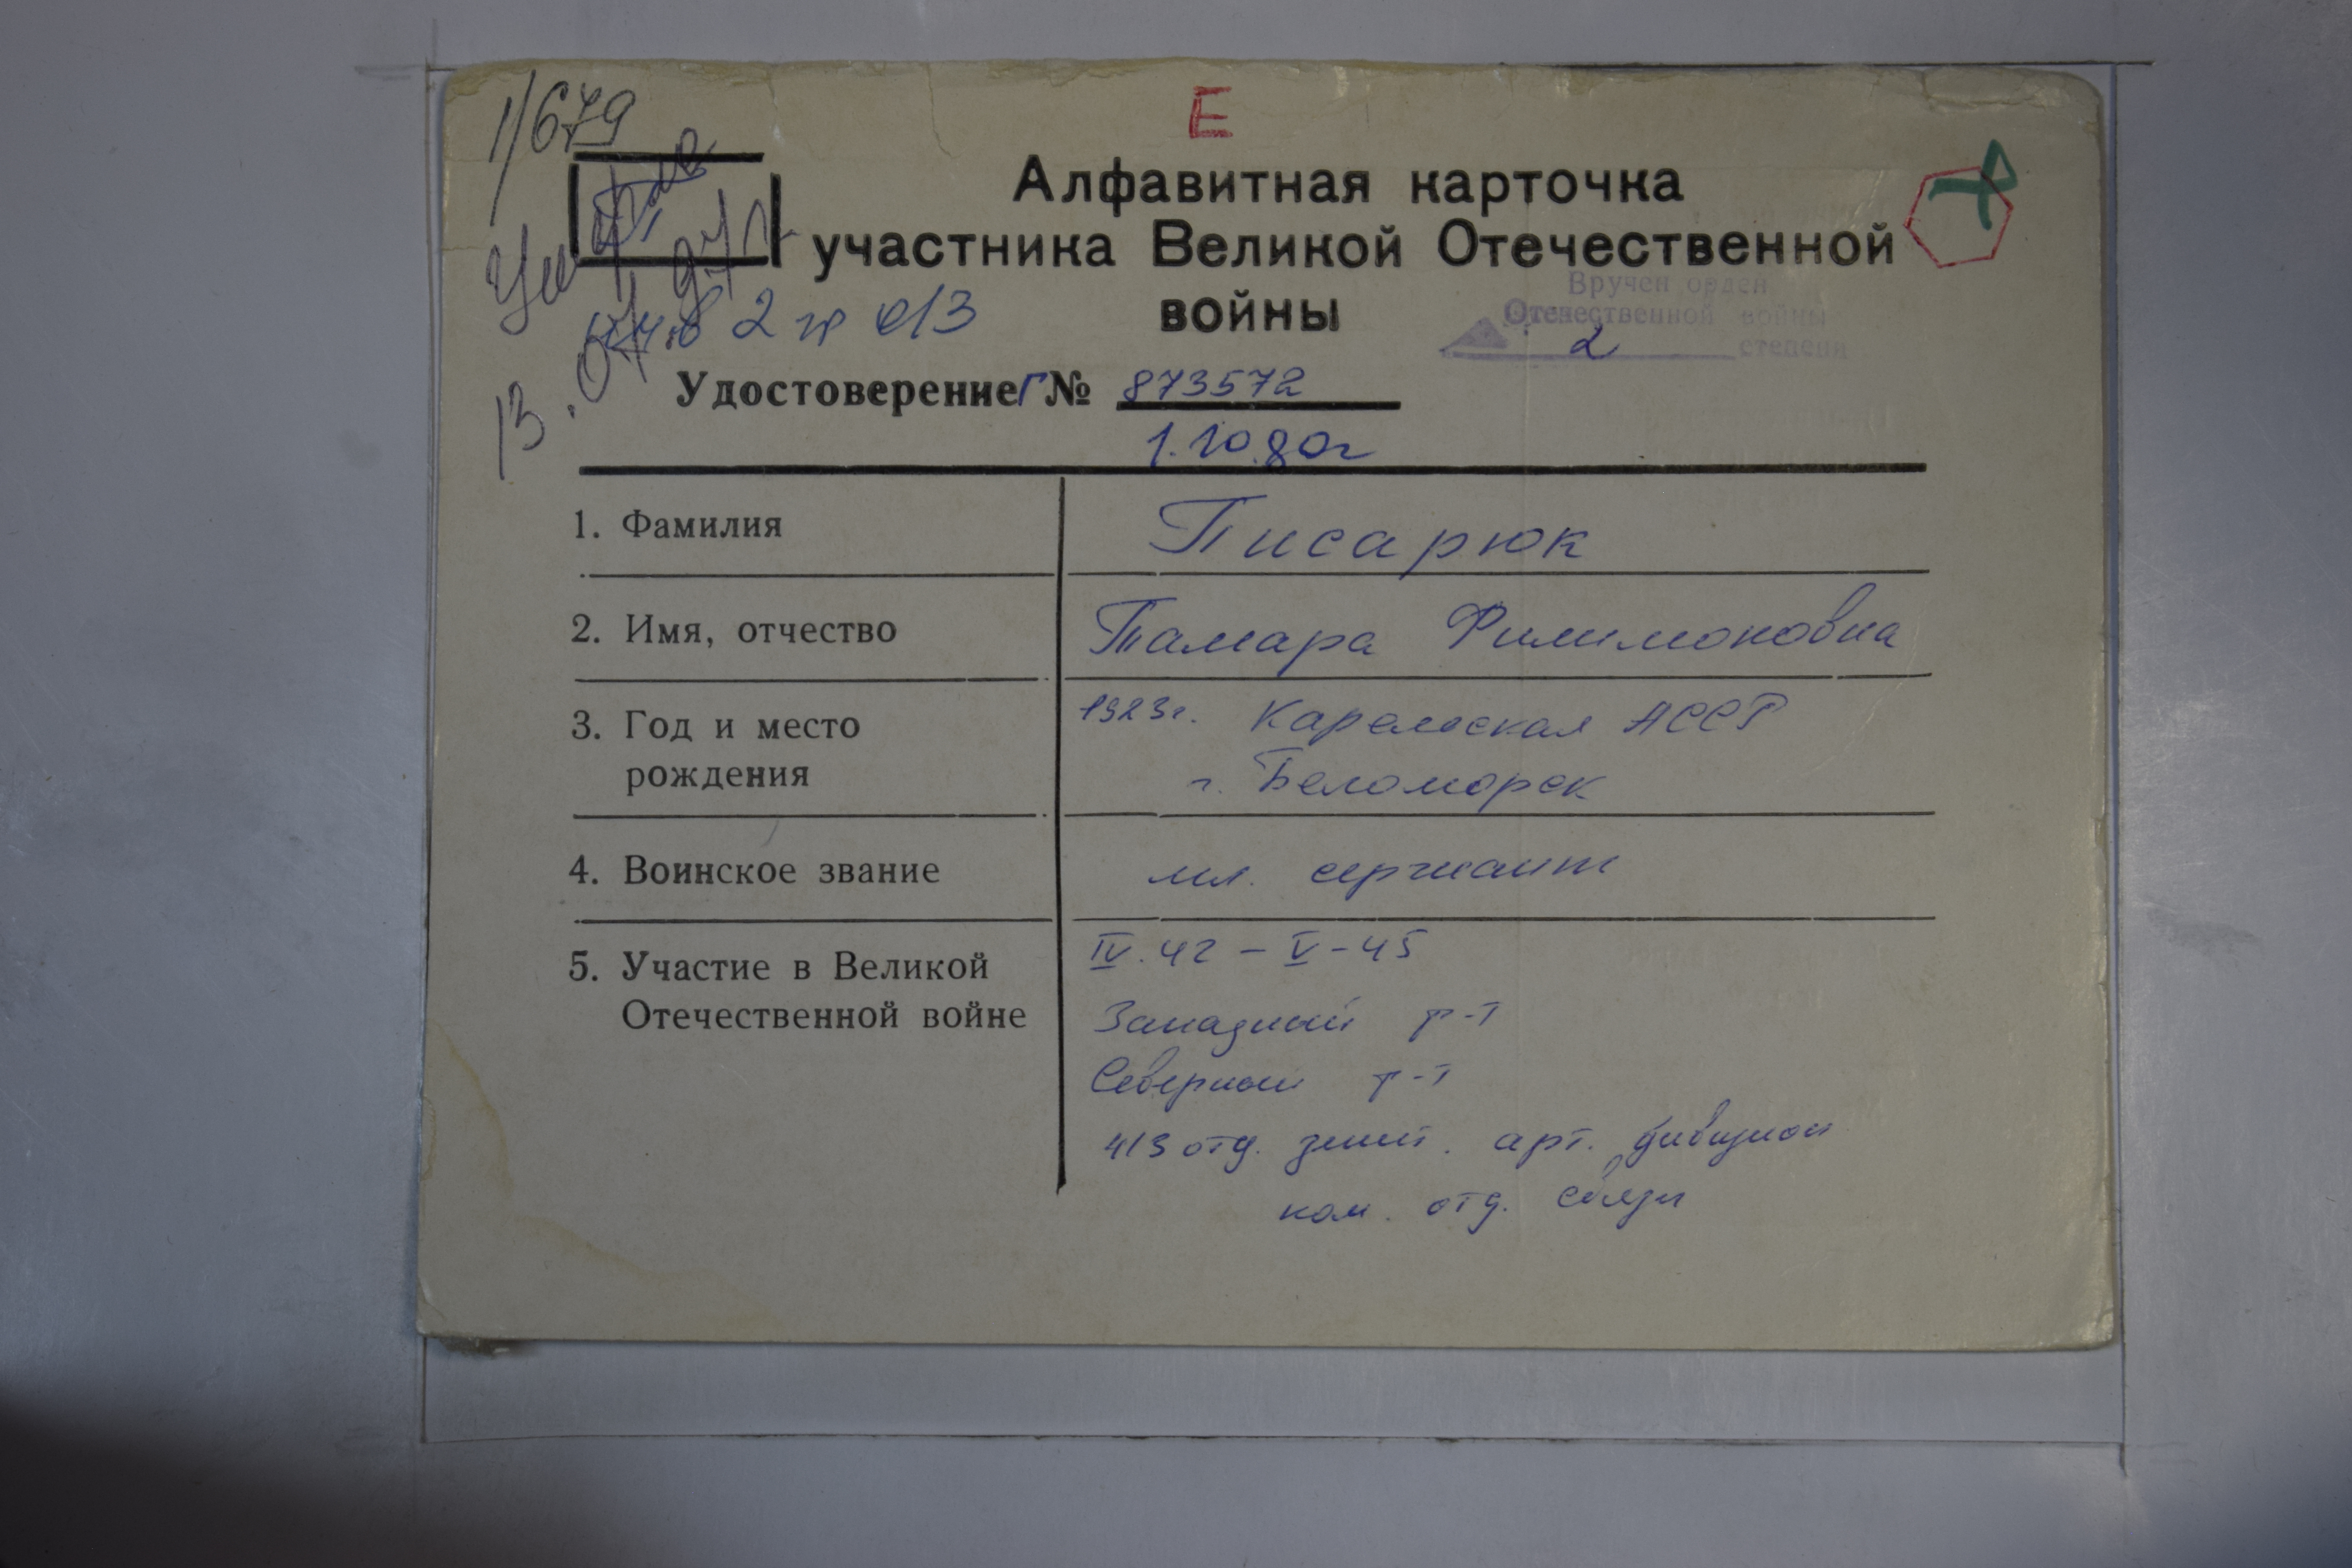 1/679
Е
Алфавитная карточка
участника Великой Отечественной
войны
Умерла
13.04.97г.
инв 2 гр о/з
Вручен орден
Отечественной войны
2 степени
Удостоверение Г № 873572
1.10.80г
1. Фамилия Писарюк
2. Имя, отчество Тамара Филимоновна
3. Год и место 1923г. Карельская АССР
рождения г. Беломорск
4. Воинское звание мл. сержант
5. Участие в Великой IV.42 - V-45
Отечественной войне Западный ф-т
Северный ф-т
413 отд. зенит. арт. дивизион
ком. отд. связи